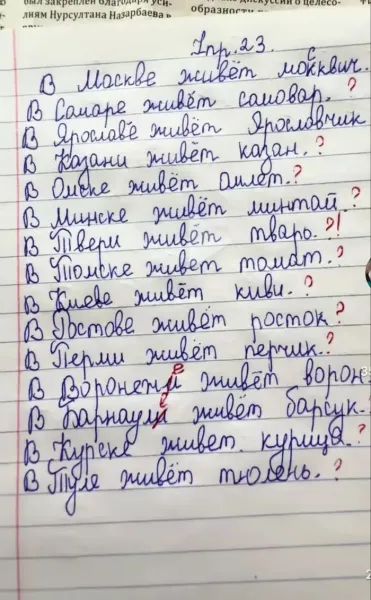 был закреплен благодаря уси-
лиям Нурсултана Назарбаева в
дискуссии о целесо-
образности
Упр. 23.
В Москве живёт москвич.
В Самаре живёт самовар. ?
В Ярославе живёт Ярославчик
В Казани живёт казан. ?
В Омске живёт омлет. ?
В Минске живёт минтай. ?
В Твери живёт тварь. ?!
В Томске живёт томат. ?
В Киеве живёт киви. ?
В Ростове живёт росток ?
В Перми живёт перчик. ?
В Воронеже живёт ворон
В Барнауле живёт барсук.
В Курске живет курица. ?
В Туле живёт тюлень. ?